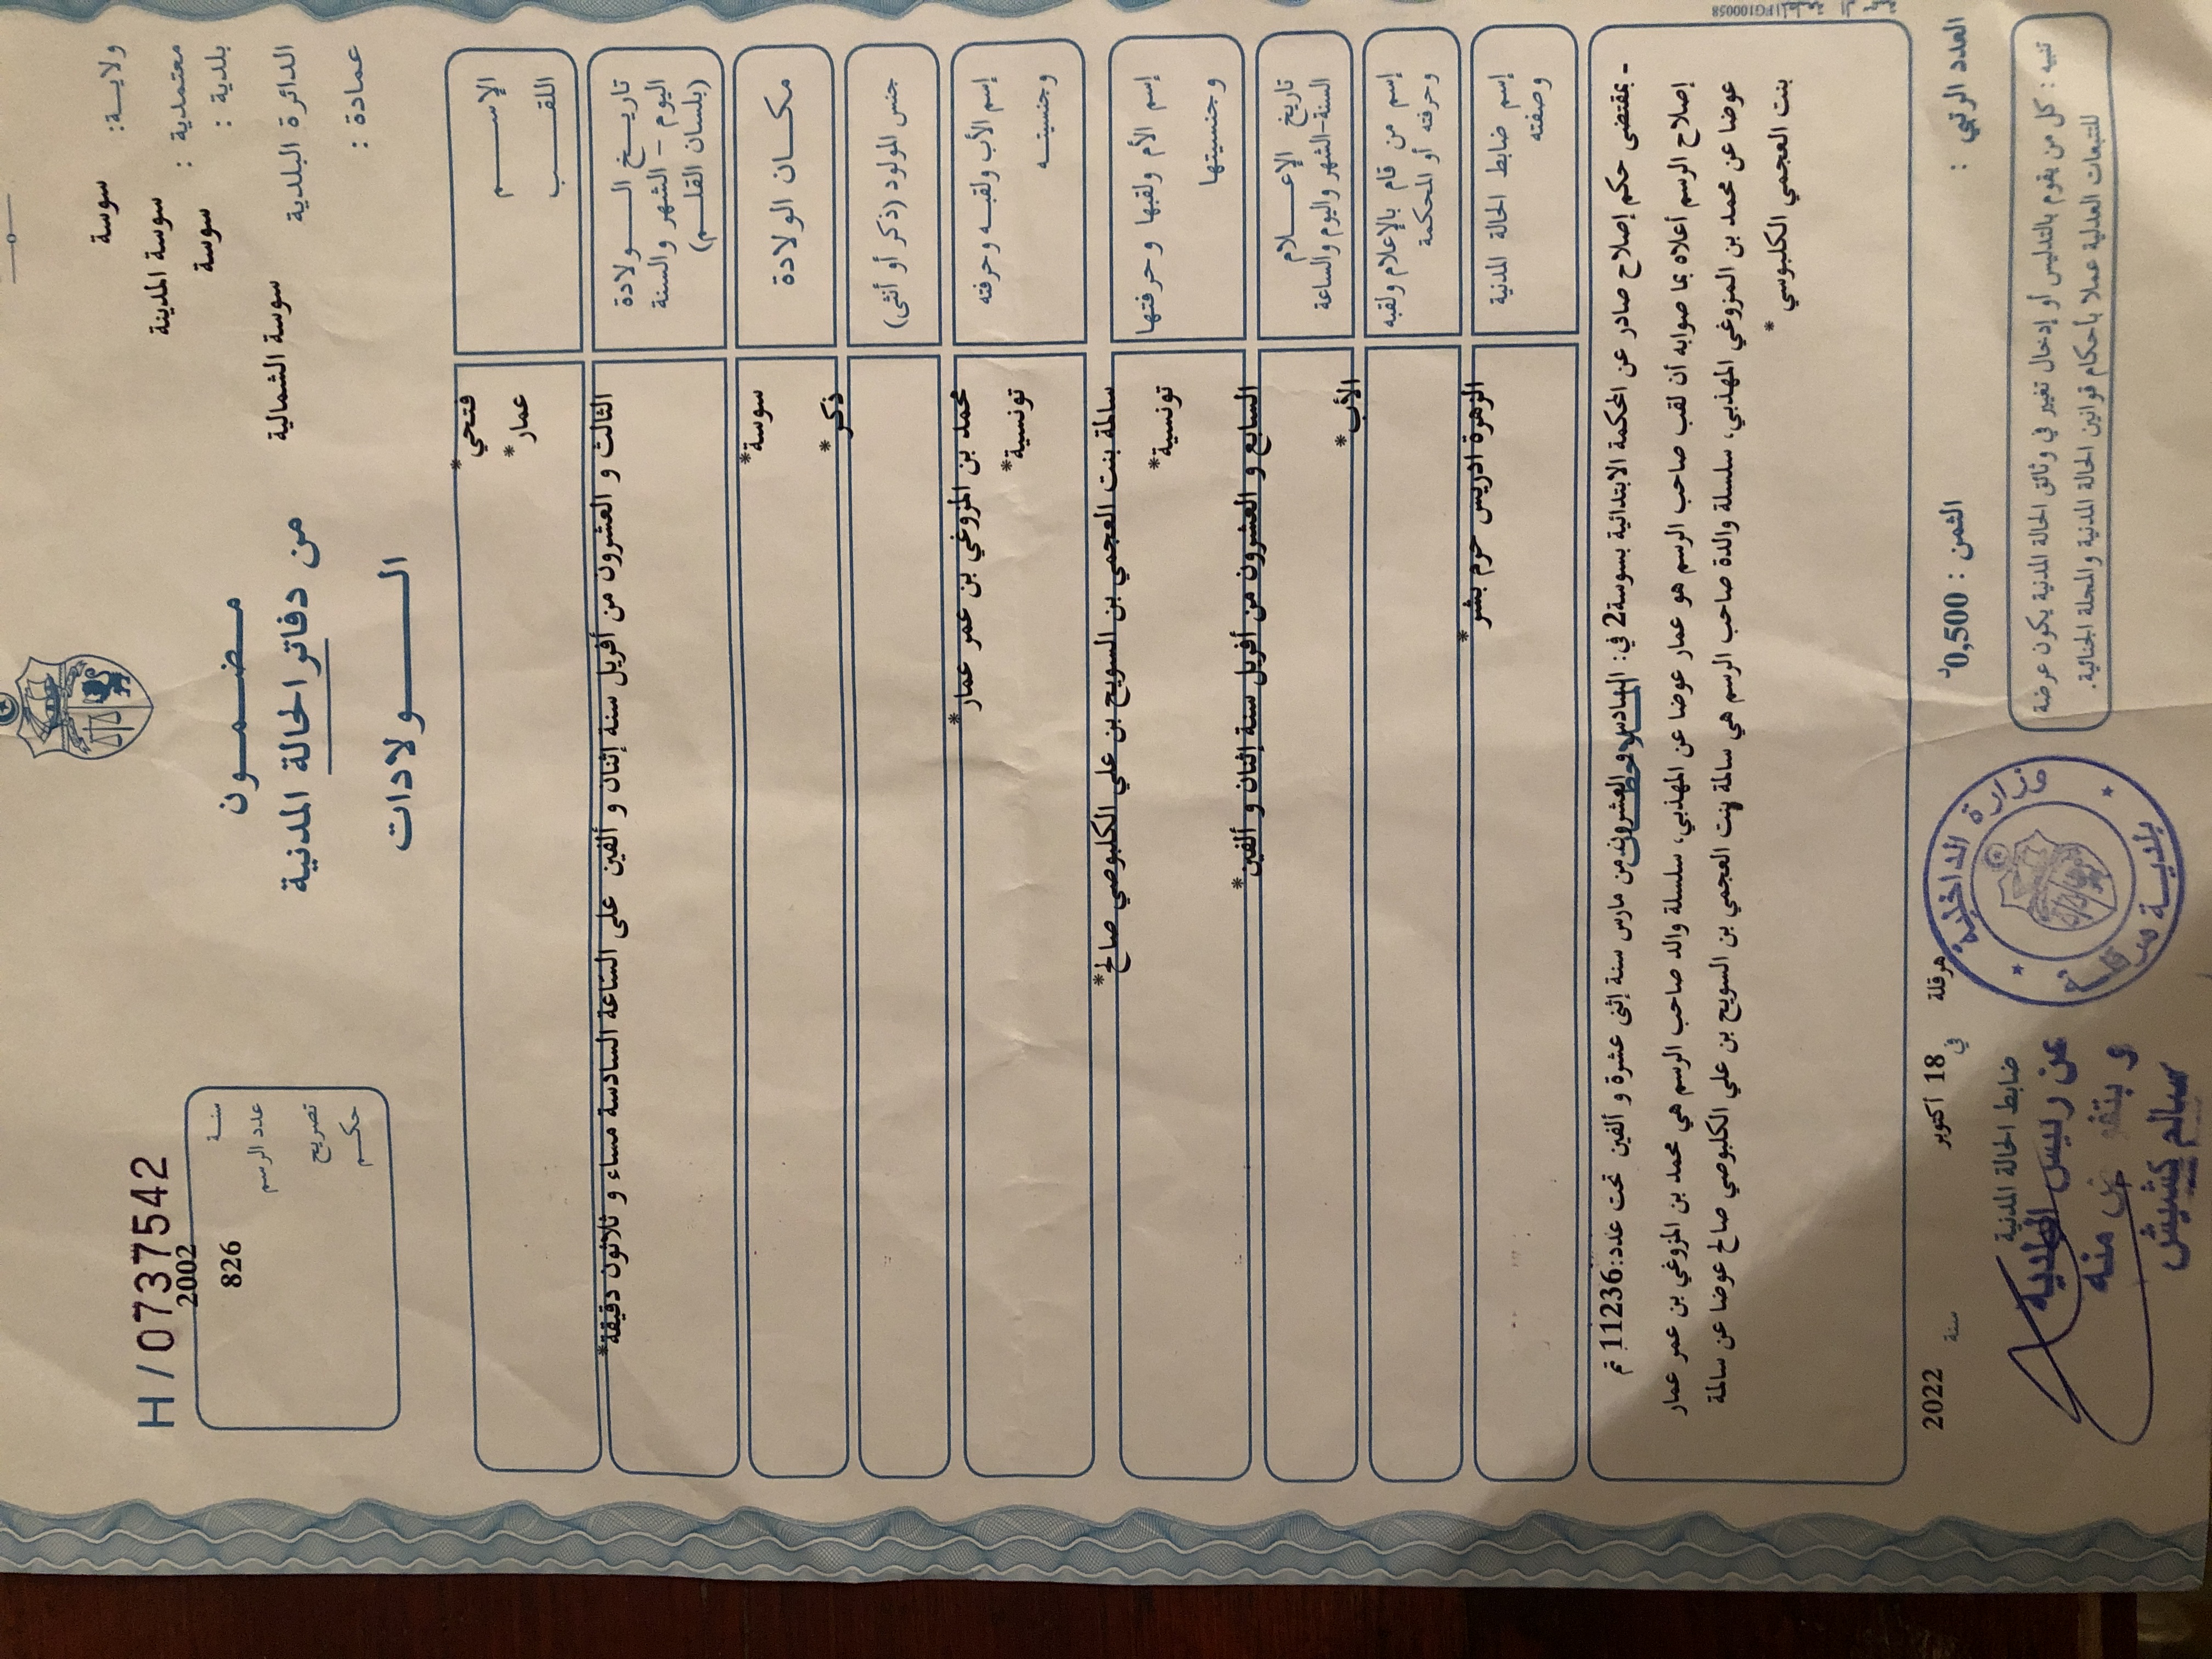 ولايـة: سوسة
معتمدية : سوسة المدينة
بلدية : سوسة
الدائرة البلدية سوسة الشمالية
عمادة :
مضمـون
من دفاتر الحالة المدنية
الـولادات
H/0737542
سنة 2002
عدد الرسم 826
تصريح
حكـم
الإسـم فتحي*
اللقـب عمار*
تاريـخ الـولادة
اليوم – الشهر والسنة
(بلسان القلـم)
الثالث و العشرون من أفريل سنة إثنان و ألفين على الساعة السادسة مساء و ثلاثون دقيقة*
مكـان الولادة سوسة*
جنس المولود (ذكر أو أنثى) ذكر*
إسم الأب ولقبـه وحرفته محمد بن المزوغي بن عمر عمار*
وجنسيتـه تونسية*
إسم الأم ولقبها وحرفتها سالمة بنت العجمي بن السويح بن علي الكلبوصي صالح*
وجنسيتها تونسية*
تاريخ الإعـلام
السنة-الشهر واليوم والساعة
السابع و العشرون من أفريل سنة إثنان و ألفين*
إسم من قام بالإعلام ولقبه
وحرفته أو المحكمة
الأب*
إسم ضابط الحالة المدنية
وصفته
الزهرة ادريس حرم بشر*
- بمقتضى حكم إصلاح صادر عن المحكمة الابتدائية بسوسة2 في: السادس و العشرون من مارس سنة إثنى عشرة و ألفين تحت عدد:11236 تم
إصلاح الرسم أعلاه بما صوابه أن لقب صاحب الرسم هو عمار عوضا عن المهذبي، سلسلة والد صاحب الرسم هي محمد بن المزوغي بن عمر عمار
عوضا عن محمد بن المزوغي المهذبي، سلسلة والدة صاحب الرسم هي سالمة بنت العجمي بن السويح بن علي الكلبوصي صالح عوضا عن سالمة
بنت العجمي الكلبوسي*
الملاحظات
1FG100058
العدد الرتبي :
الثمن : 0,500د
هرقلة في 18 اكتوبر سنة 2022
تنبيه : كل من يقوم بالتدليس أو إدخال تغيير في وثائق الحالة المدنية يكون عرضة
للتتبعات العدلية عملا بأحكام قوانين الحالة المدنية والمجلة الجنائية.
ضابط الحالة المدنية
وزارة الداخلية
بلدية هرقلة
عن رئيس البلدية
منه
سالم كشيش